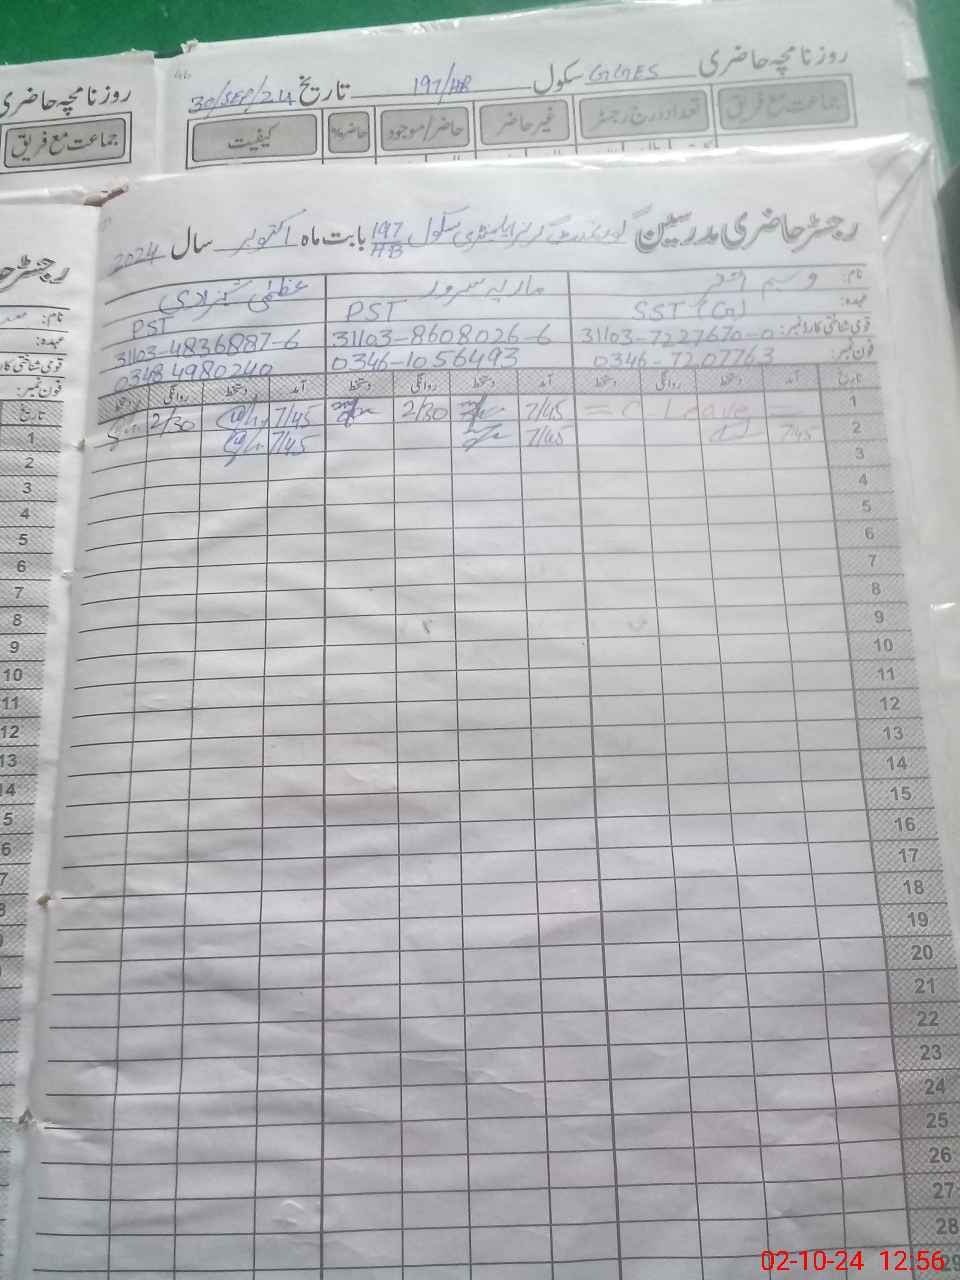 روزنامچہ حاضری GGES سکول 197/HB تاریخ 30/SEP/24
46
جماعت مع فریق تعداد درج رجسٹر غیر حاضر حاضر/موجود حاضر% کیفیت
روزنامچہ حاضری
جماعت مع فریق
رجسٹر حاضری مدرسین گورنمنٹ گرلز ایلیمنٹری سکول 197/HB بابت ماہ اکتوبر سال 2024
نام: وسیم ماریہ سرور عظمیٰ شہزادی
عہدہ: SST (G) PST PST
قومی شناختی کارڈ نمبر: 31103-7227670-0 31103-8608026-6 31103-4836887-6
فون نمبر: 0346-7207763 0346-1056493 0348 4980240
تاریخ آمد دستخط روانگی دستخط آمد دستخط روانگی دستخط آمد دستخط روانگی دستخط
1 = C-Leave = 7/45 2/30 7/45 2/30
2 7/45 7/45 7/45
3
4
5
6
7
8
9
10
11
12
13
14
15
16
17
18
19
20
21
22
23
24
25
26
27
28
29
نام:
عہدہ:
قومی شناختی کا
فون نمبر:
تاریخ
1
2
3
4
5
6
7
8
9
10
11
12
13
14
02-10-24 12:56